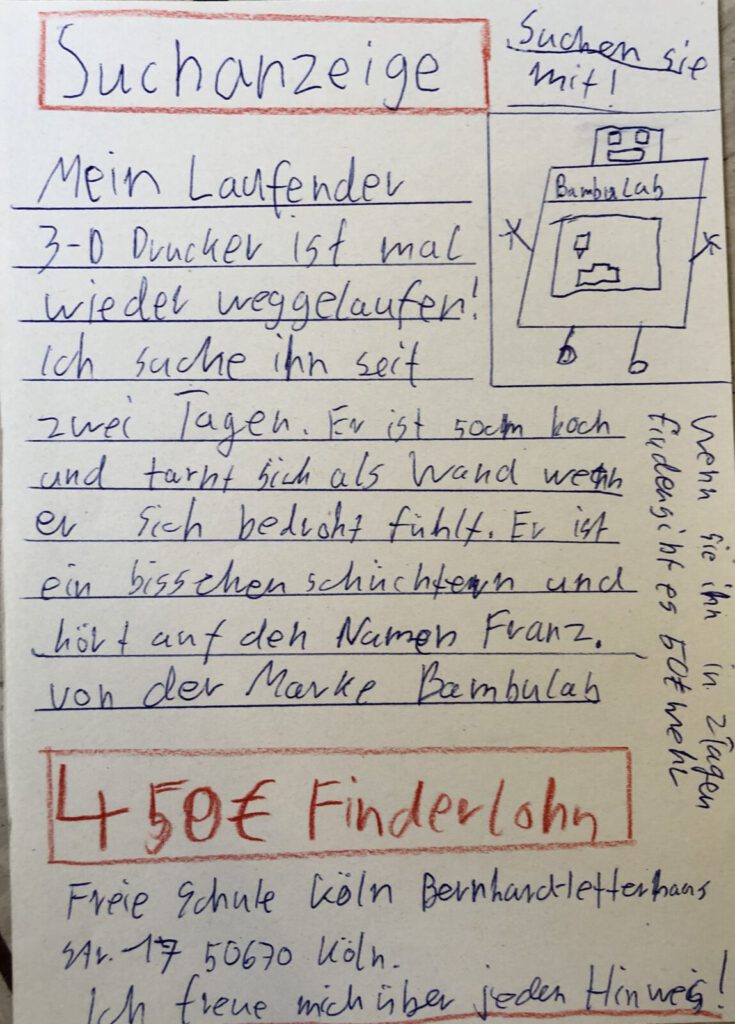 Suchanzeige
Suchen sie
mit!
Bambulab
Mein Laufender
3-D Drucker ist mal
wieder weggelaufen!
Ich suche ihn seit
zwei Tagen. Er ist 50cm hoch
und tarnt sich als Wand wenn
er sich bedroht fühlt. Er ist
ein bisschen schüchtern und
hört auf den Namen Franz.
von der Marke Bambulab
wenn sie ihn in 2Tagen
finden giht es 50€ mehr
450€ Finderlohn
Freie Schule Köln Bernhard-letterhaus
Str. 17 50670 Köln.
Ich freue mich über jeden Hinweis!